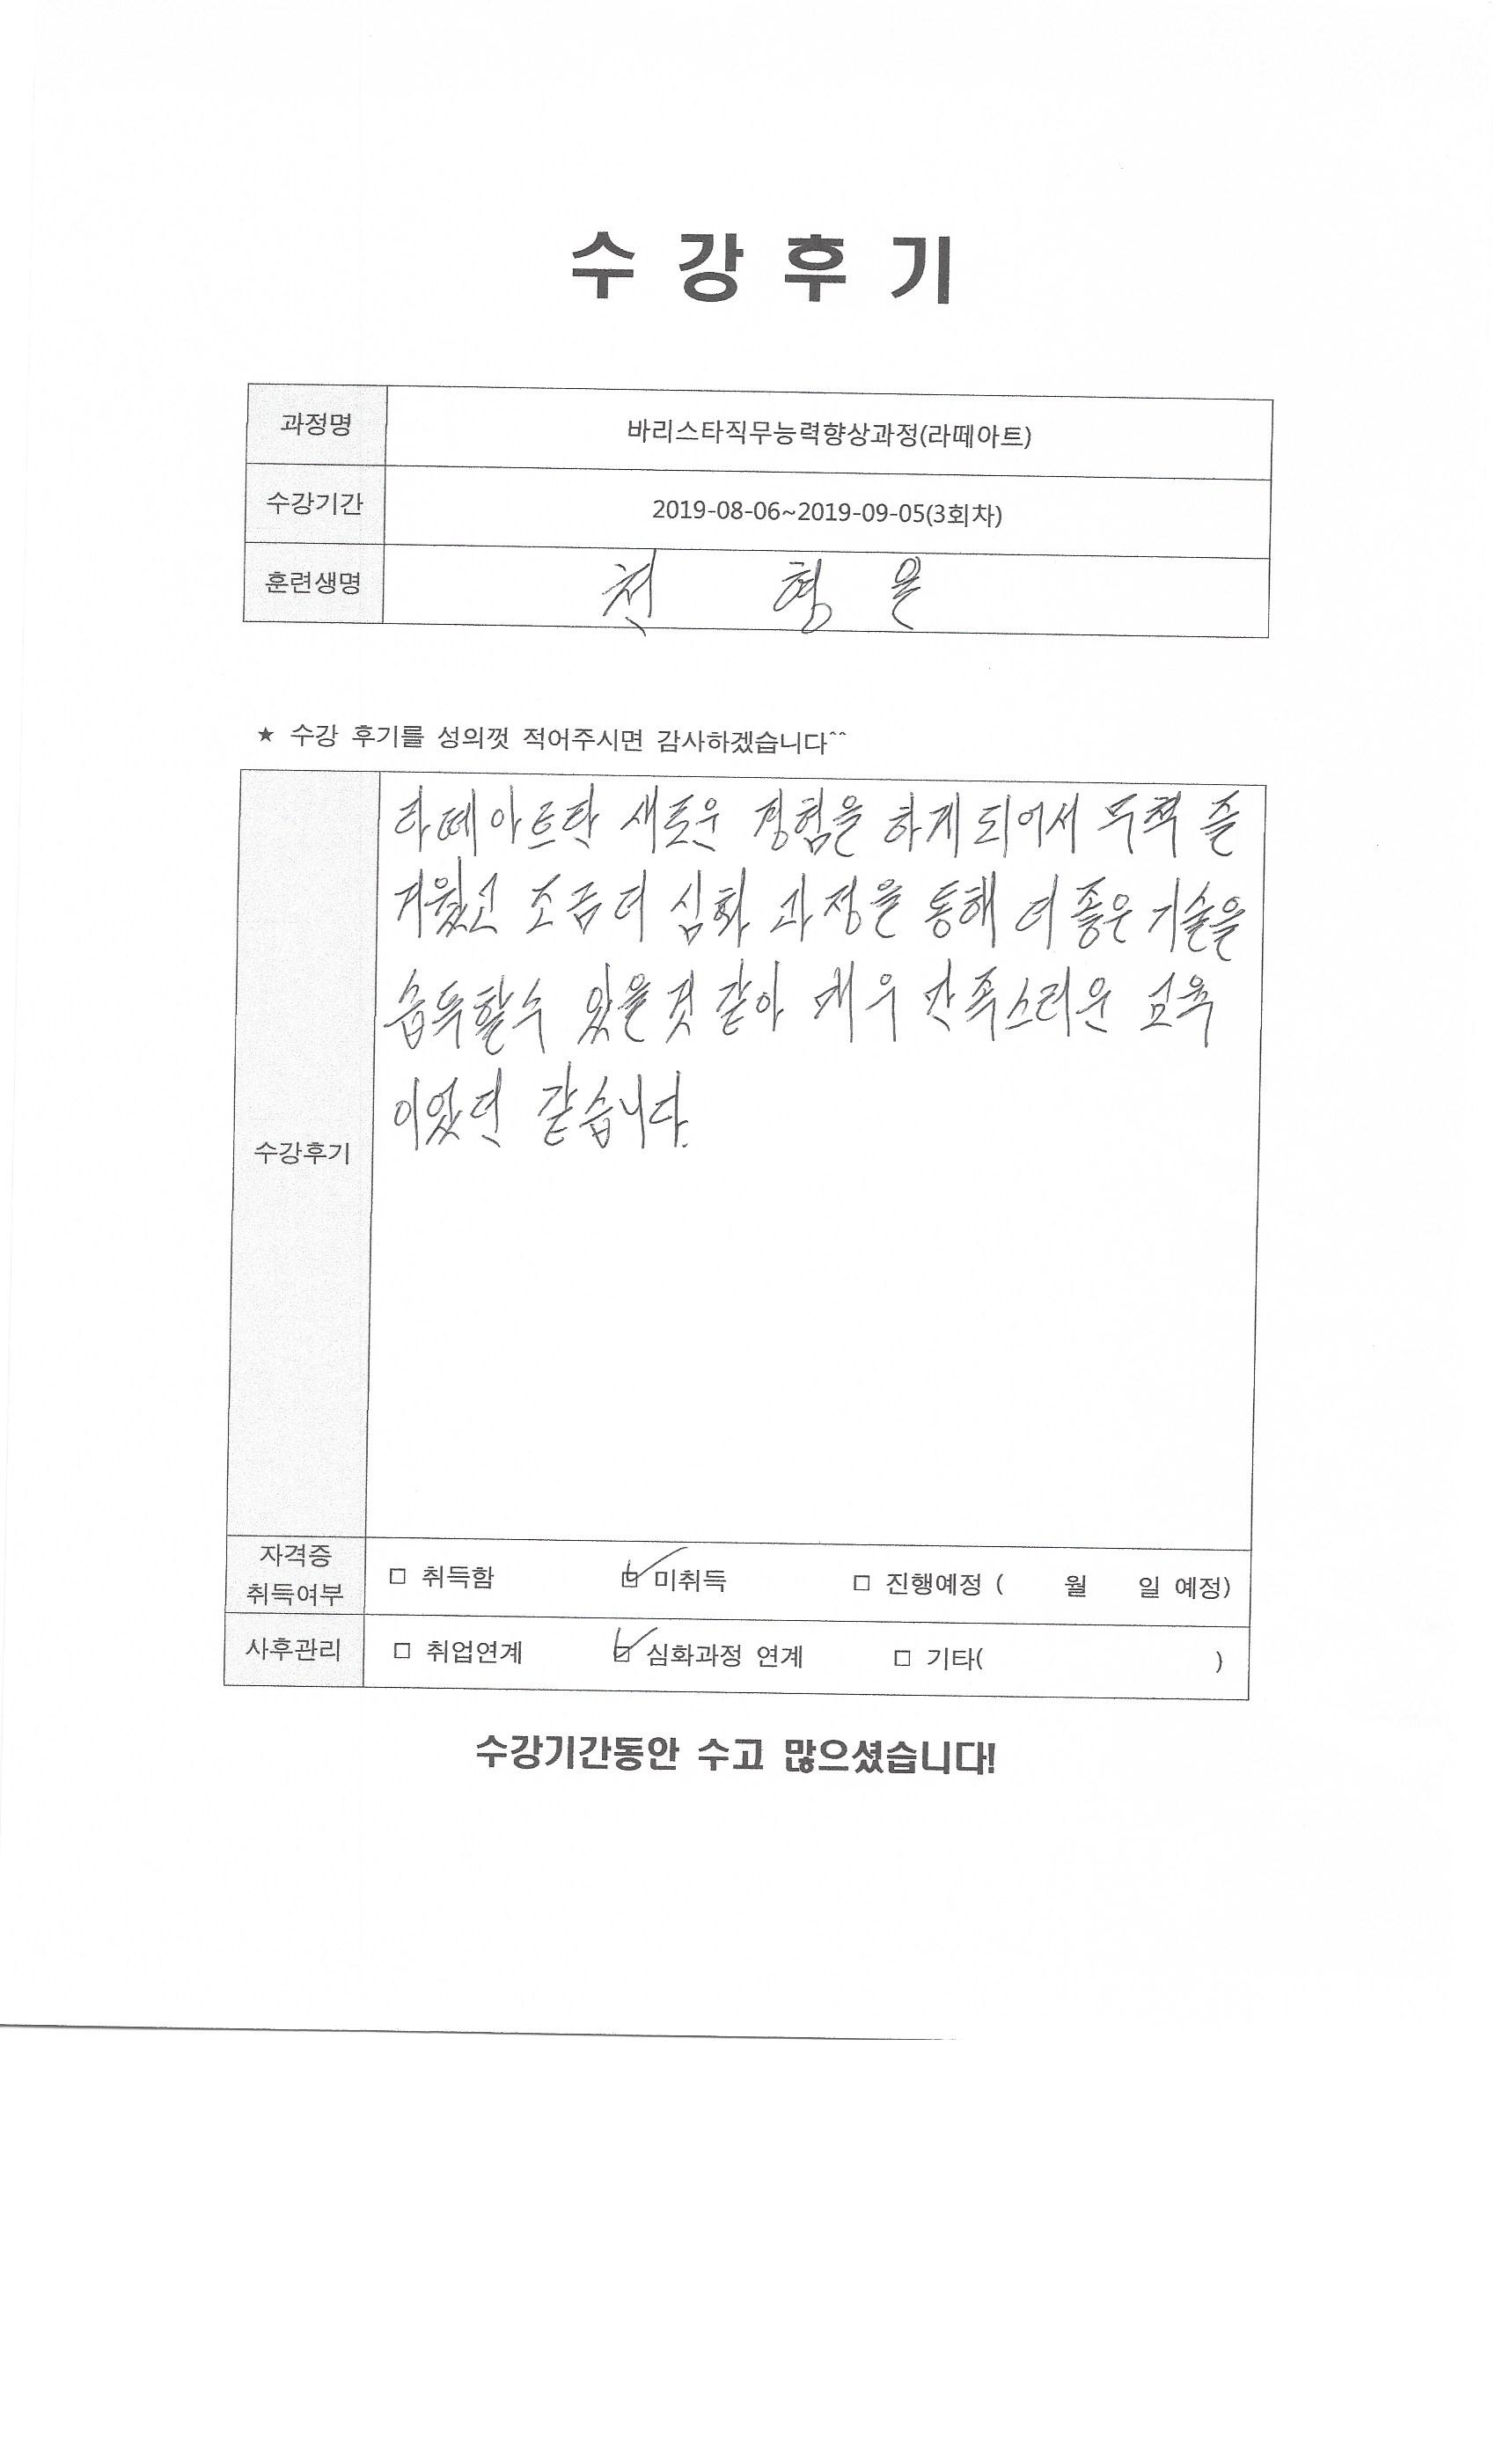 수 강 후 기
과정명 바리스타직무능력향상과정(라떼아트)
수강기간 2019-08-06~2019-09-05(3회차)
훈련생명 천 형 은
★ 수강 후기를 성의껏 적어주시면 감사하겠습니다^^
라떼아트란 새로운 경험을 하게 되어서 무척 즐
거웠고 조금더 심화 과정을 통해 더 좋은 기술을
습득할수 있을것 같아 매우 만족스러운 교육
이었던 같습니다.
수강후기
자격증
취득여부
□ 취득함 ☑ 미취득 □ 진행예정 ( 월 일 예정)
사후관리 □ 취업연계 ☑ 심화과정 연계 □ 기타( )
수강기간동안 수고 많으셨습니다!